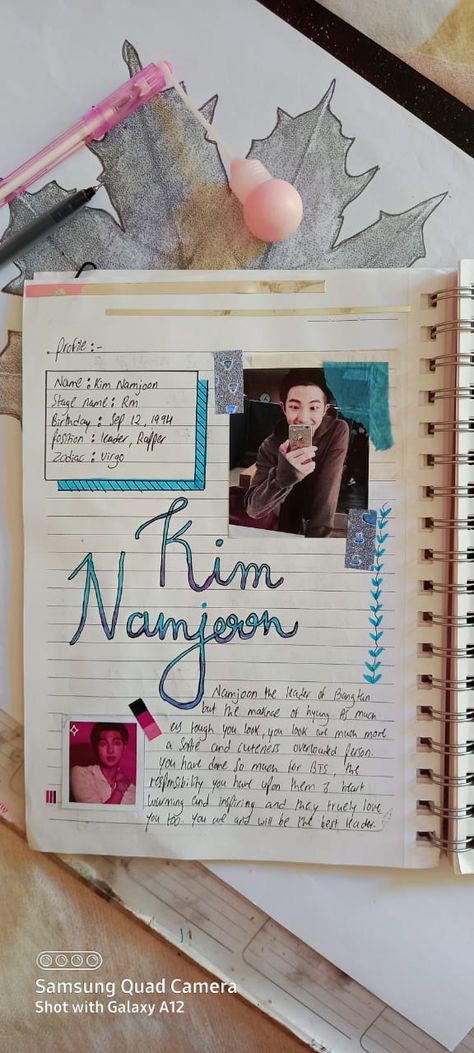 profile :-
Name : Kim Namjoon
Stage name : Rm
Birthday : Sep 12, 1994
position : leader, Rapper
Zodiac : Virgo
Kim
Namjoon
Namjoon the leader of Bangtan
but the maknae of hyung. As much
as tough you look, you look are much more
a softie and cuteness overloaded person.
you have done so much for BTS, the
responsibility you have upon them is heart
warming and inspiring and they truely love
you too. you are and will be the best leader.
Samsung Quad Camera
Shot with Galaxy A12